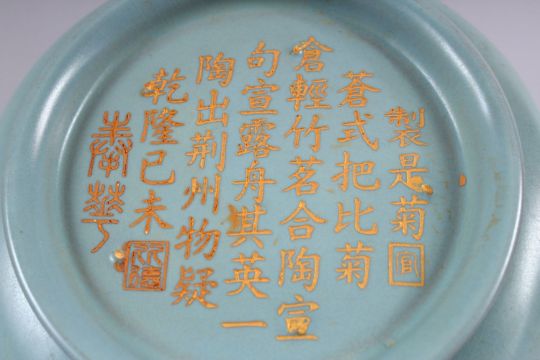 製是菊官
蒼式把比菊
倉輕竹茗合陶宣
句宣露舟其英一
陶出荆州物疑
乾隆己未
奉華